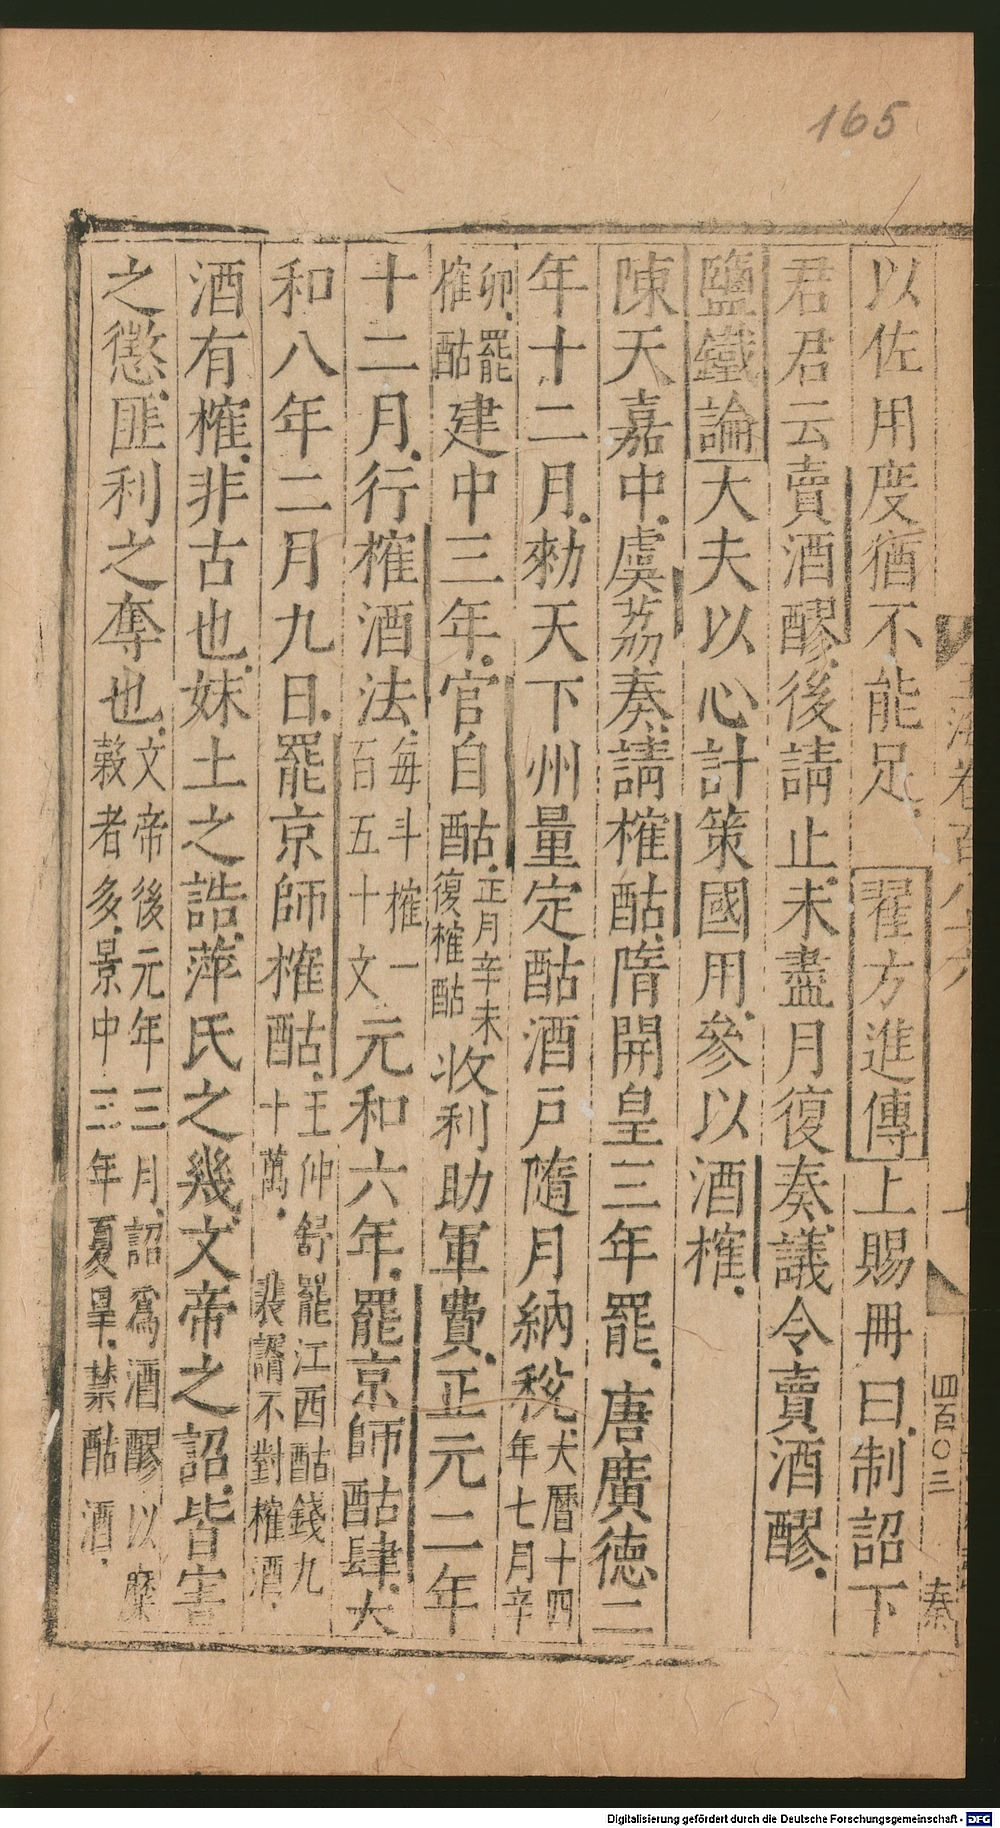 165
以佐用度猶不能足 翟方進傳上賜冊曰制詔下
君君云賣酒醪後請止未盡月復奏議令賣酒醪
鹽鐵論大夫以心計策國用參以酒榷
陳天嘉中虞荔奏請榷酤隋開皇三年罷 唐廣德二
年十二月勑天下州量定酤酒戶隨月納稅大曆十四
年七月辛
卯罷
榷酤
建中三年官自酤正月辛未
復榷酤
收利助軍費正元二年
十二月行榷酒法每斗榷一
百五十文
元和六年罷京師酤肆大
和八年二月九日罷京師榷酤王仲舒罷江西酤錢九
十萬 裴諝不對榷酒
酒有榷非古也妹土之誥萍氏之幾文帝之詔皆害
之懲匪利之奪也文帝後元年三月詔爲酒醪以糜
穀者多景中三年夏旱禁酤酒
海卷百八十六
四百〇三
秦
Digitalisierung gefördert durch die Deutsche Forschungsgemeinschaft - DFG